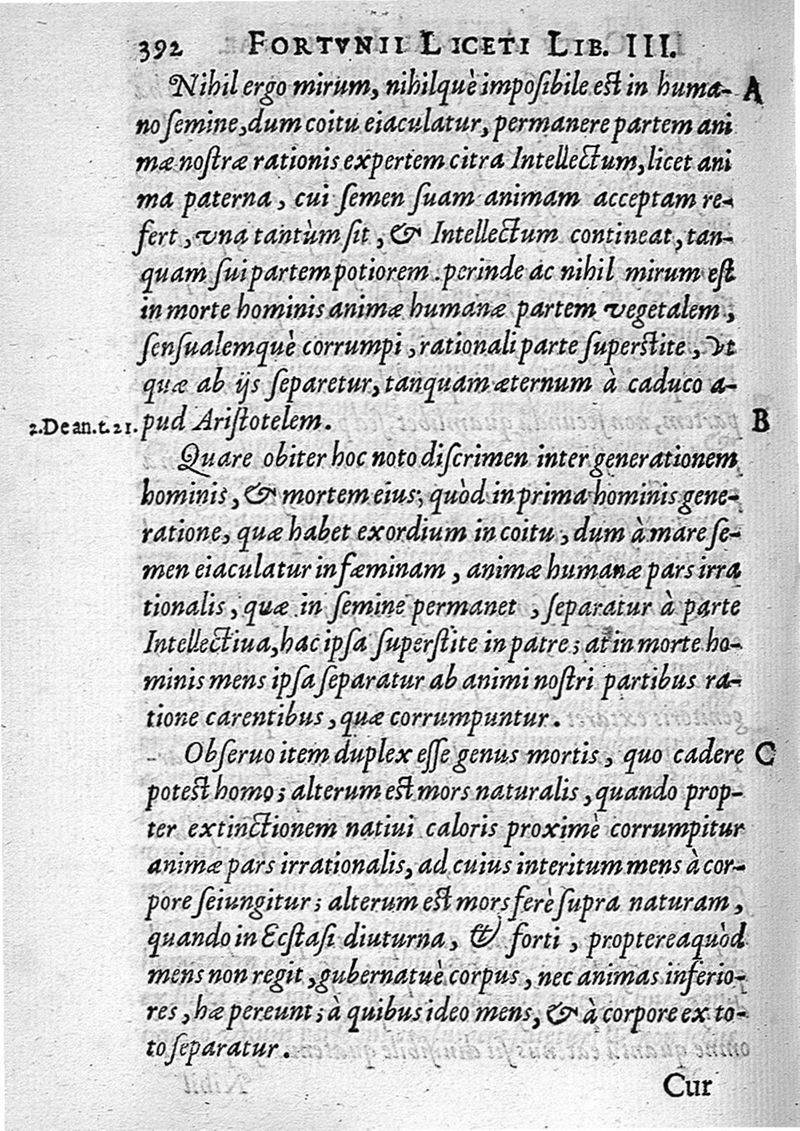 392 FORTVNII LICETI LIB. III.
Nihil ergo mirum, nihilquè imposibile est in huma- A
no semine, dum coitu eiaculatur, permanere partem ani
mæ nostræ rationis expertem citra Intellectum, licet ani
ma paterna, cui semen suam animam acceptam re-
fert, vna tantùm sit, & Intellectum contineat, tan-
quam sui partem potiorem. perinde ac nihil mirum est
in morte hominis animæ humanæ partem vegetalem,
sensualemquè corrumpi, rationali parte superstite, vt
quæ ab ijs separetur, tanquam æternum à caduco a-
2.De an.t.21. pud Aristotelem. B
Quare obiter hoc noto discrimen inter generationem
hominis, & mortem eius; quòd in prima hominis gene-
ratione, quæ habet exordium in coitu, dum à mare se-
men eiaculatur in fæminam, animæ humanæ pars irra
tionalis, quæ in semine permanet, separatur à parte
Intellectiua, hac ipsa superstite in patre; at in morte ho-
minis mens ipsa separatur ab animi nostri partibus ra-
tione carentibus, quæ corrumpuntur.
Obseruo item duplex esse genus mortis, quo cadere C
potest homo; alterum est mors naturalis, quando prop-
ter extinctionem natiui caloris proximè corrumpitur
animæ pars irrationalis, ad cuius interitum mens à cor-
pore seiungitur; alterum est mors ferè supra naturam,
quando in Ecstasi diuturna, & forti, proptereaquòd
mens non regit, gubernatuè corpus, nec animas inferio-
res, hæ pereunt; à quibus ideo mens, & à corpore ex to-
to separatur.
Cur